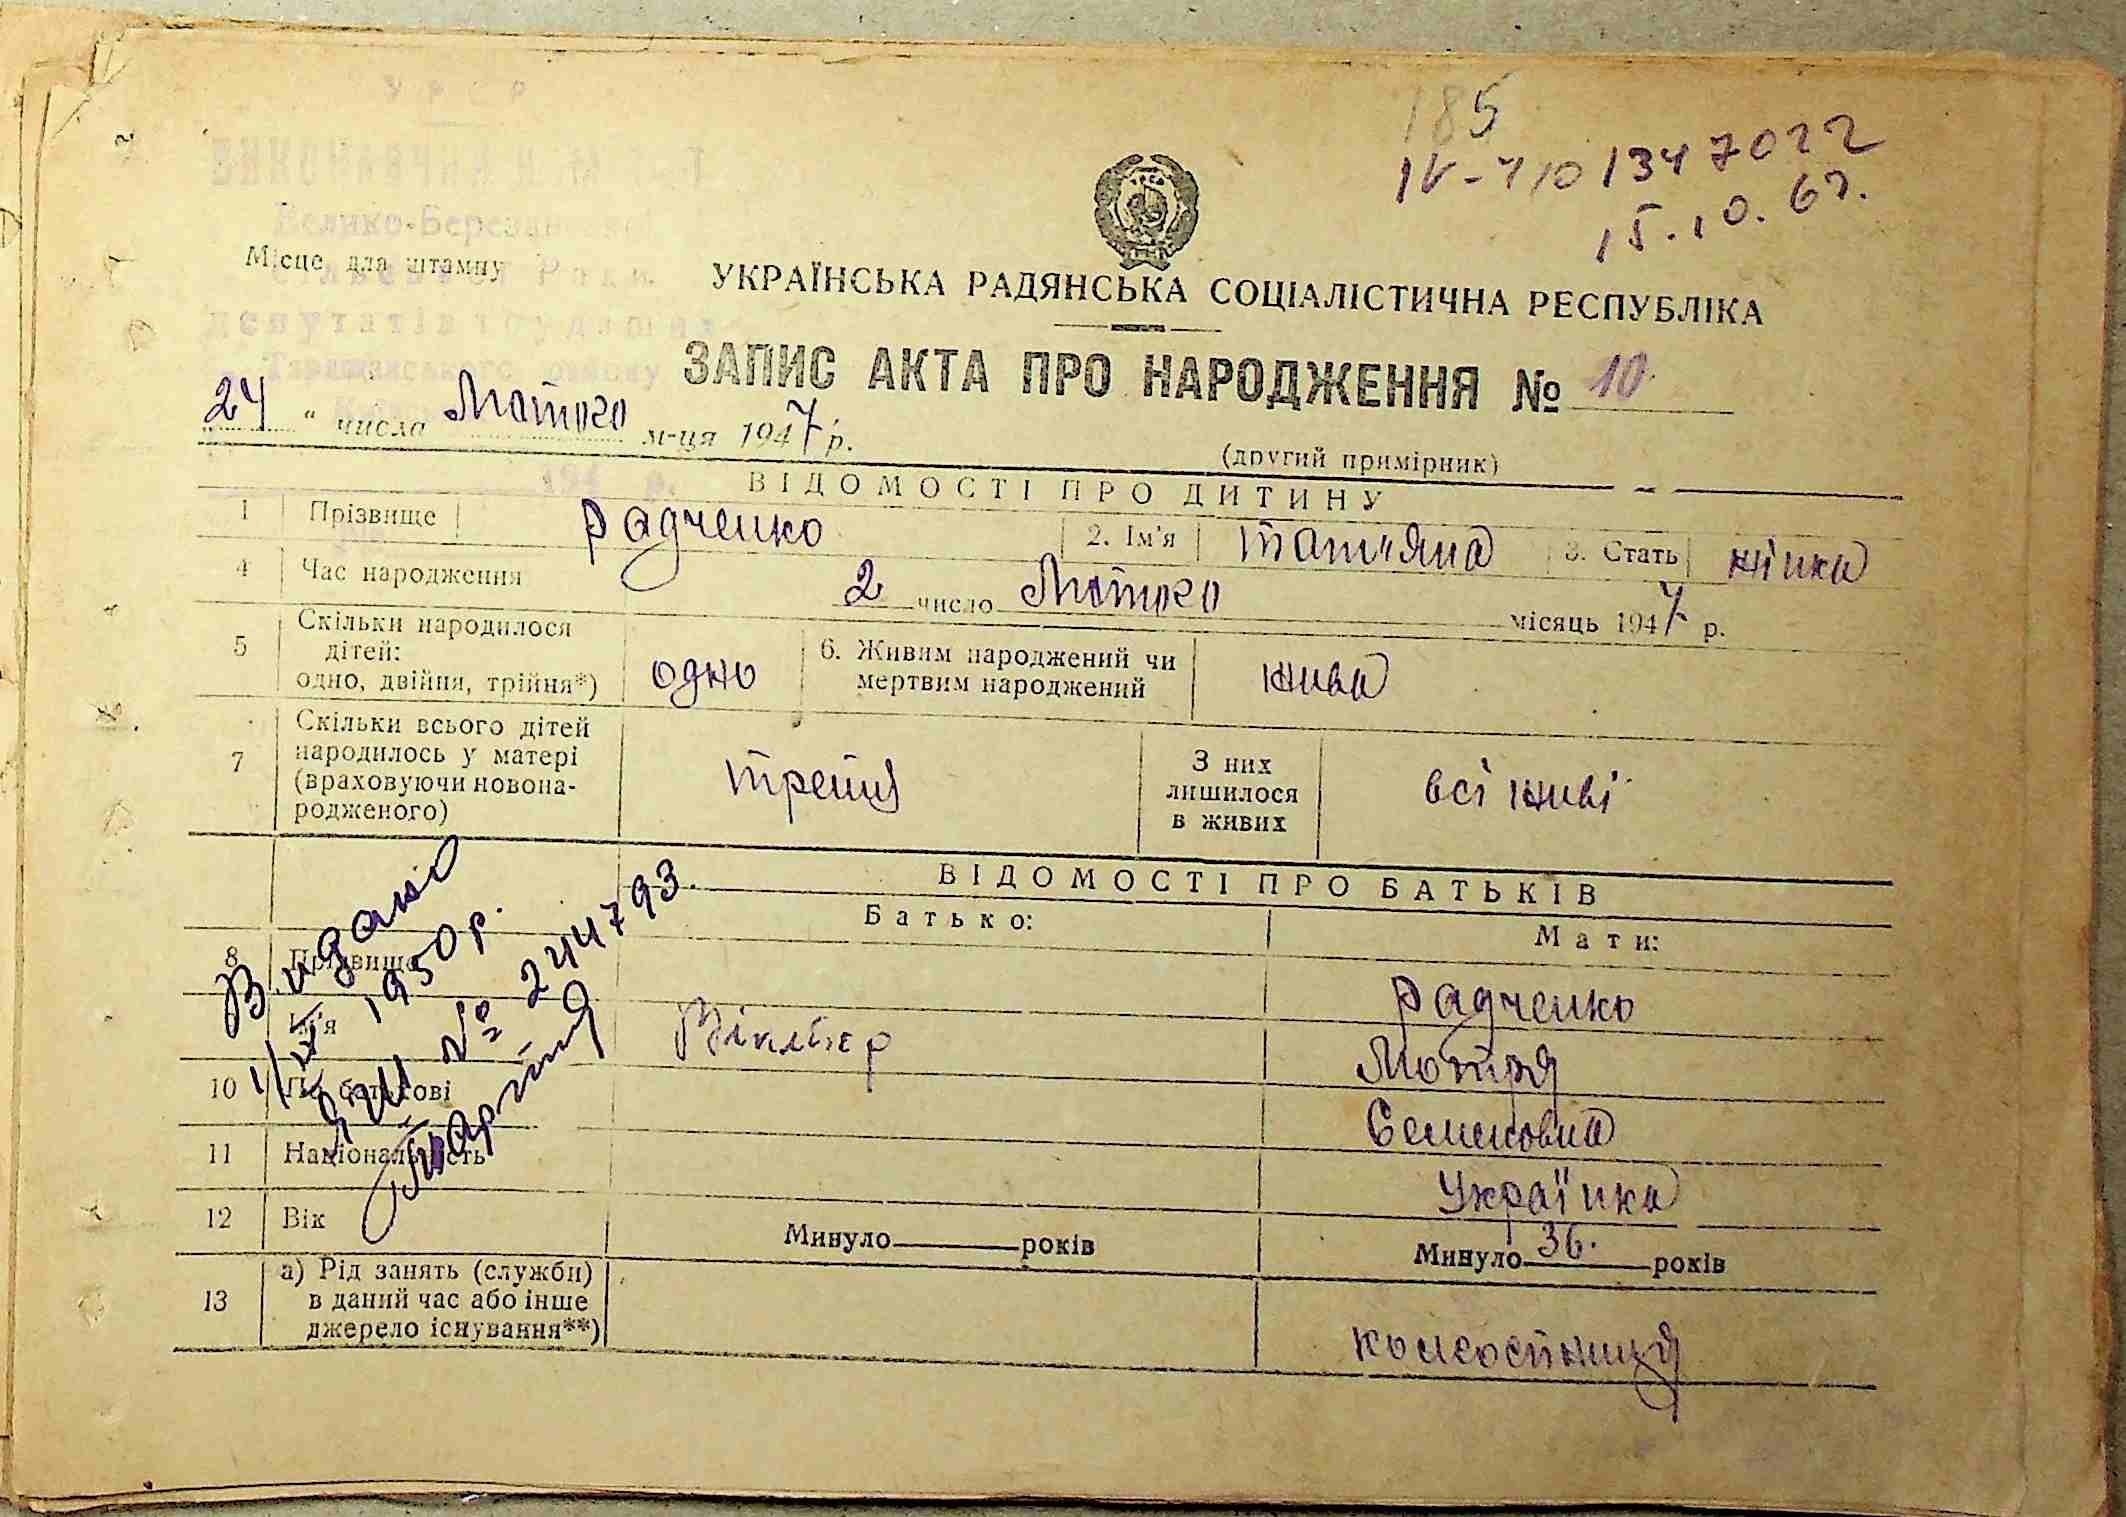 У Р С Р
Велико-Березанської
185
IV-УЮ 1347022
15.10.67.
Місце для штампу
сільської Ради
УКРАЇНСЬКА РАДЯНСЬКА СОЦІАЛІСТИЧНА РЕСПУБЛІКА
депутатів трудящих
Таращанського району
ЗАПИС АКТА ПРО НАРОДЖЕННЯ № 10
24 " числа Лютого м-ця 1947 р.
(другий примірник)
194 р.
ВІДОМОСТІ ПРО ДИТИНУ
1 Прізвище Радченко 2. Ім'я Тат'яна 3. Стать жінка
№
4 Час народження 2 число Лютого місяць 1947 р.
5 Скільки народилося дітей: одно, двійня, трійня*) одно 6. Живим народжений чи мертвим народжений жива
7 Скільки всього дітей народилось у матері (враховуючи новонародженого) третя З них лишилося в живих всі живі
ВІДОМОСТІ ПРО БАТЬКІВ
Батько: Мати:
8 Прізвище Радченко
Ім'я Мотря
10 По батькові Семеновна
11 Національність Українка
12 Вік Минуло років Минуло 36. років
13 а) Рід занять (служби) в даний час або інше джерело існування**) колгоспниця
Видано
1950 р.
ЯШ № 244793.